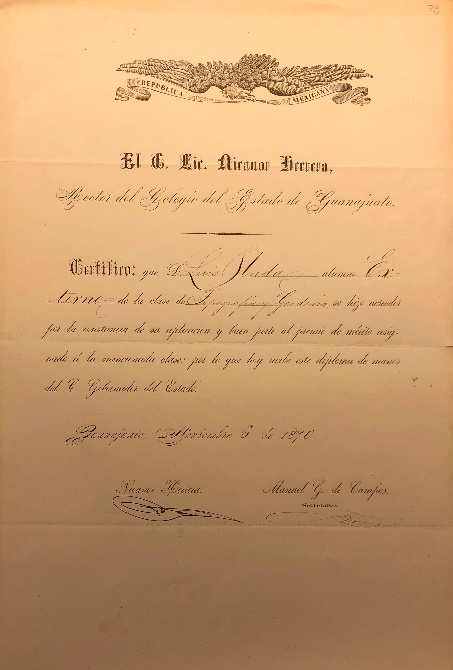 38
REPUBLICA MEXICANA
El C. Lic. Nicanor Herrera,
Rector del Colegio del Estado de Guanajuato.
Certifico: que D. Luis alumno Ex-
terno de la clase de Topografía y Geodesia se hizo acreedor
por la constancia de su aplicacion y buen porte al premio de mérito asig-
nado á la mencionada clase: por lo que hoy recibe este diploma de manos
del C. Gobernador del Estado.
Guanajuato, Noviembre 5 de 1870
Nicanor Herrera. Manuel G. de Campos,
Secretario.